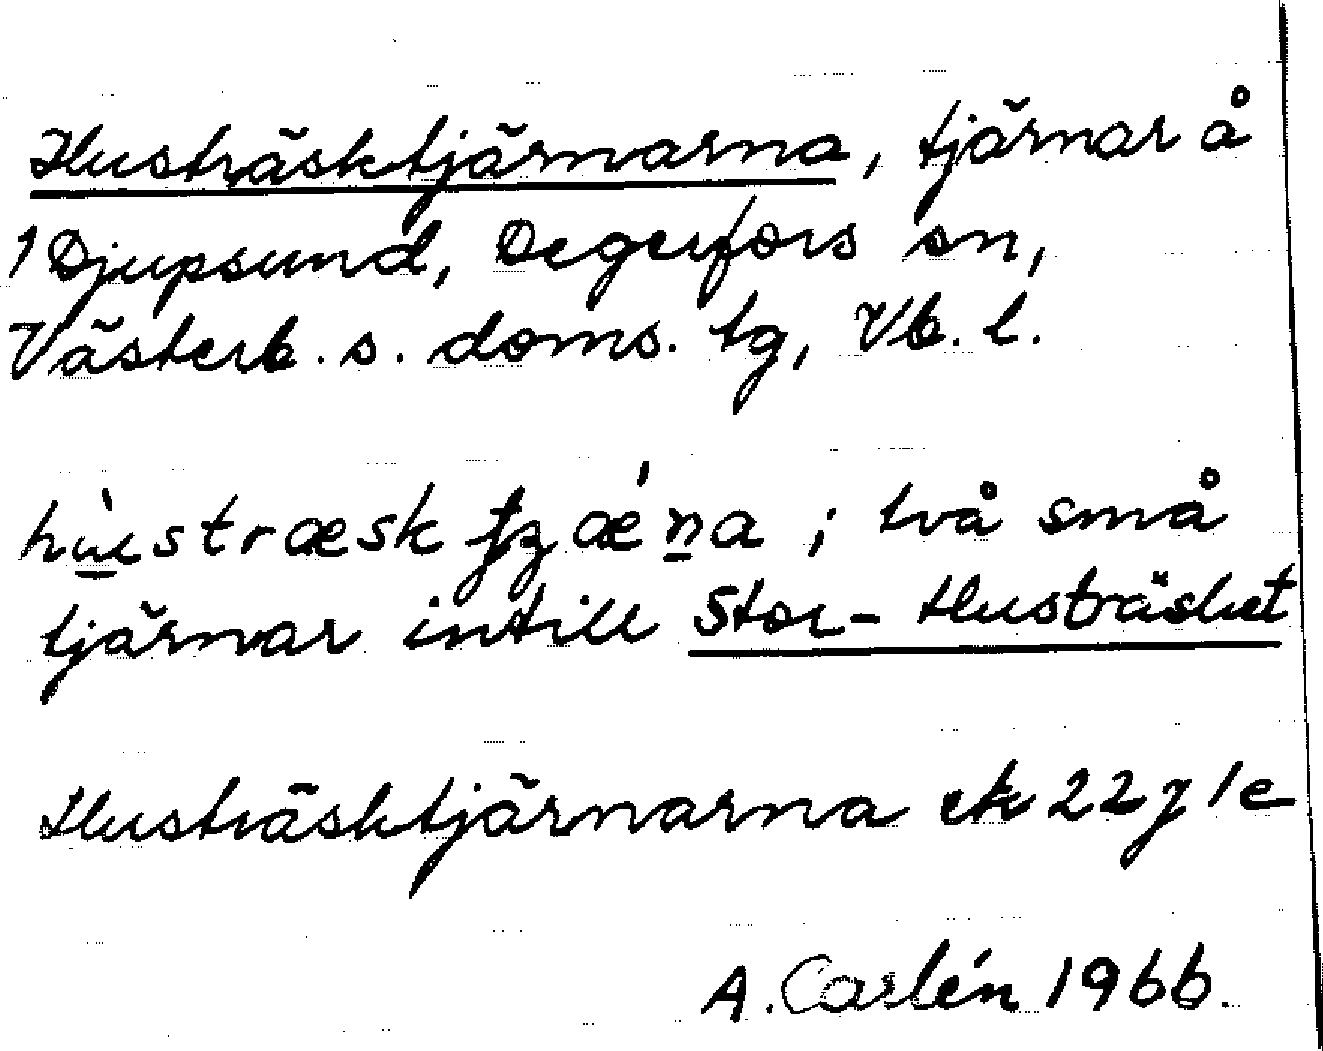 Husträsktjärnarna, tjärnar å
1 Djupsund, Degerfors sn,
Västerb. s. doms. tg, Vb. l.
tjärnar intill Stor-Husträsket
två små
Husträsktjärnarna ek 22 j 1 e
A. Carlén 1966.